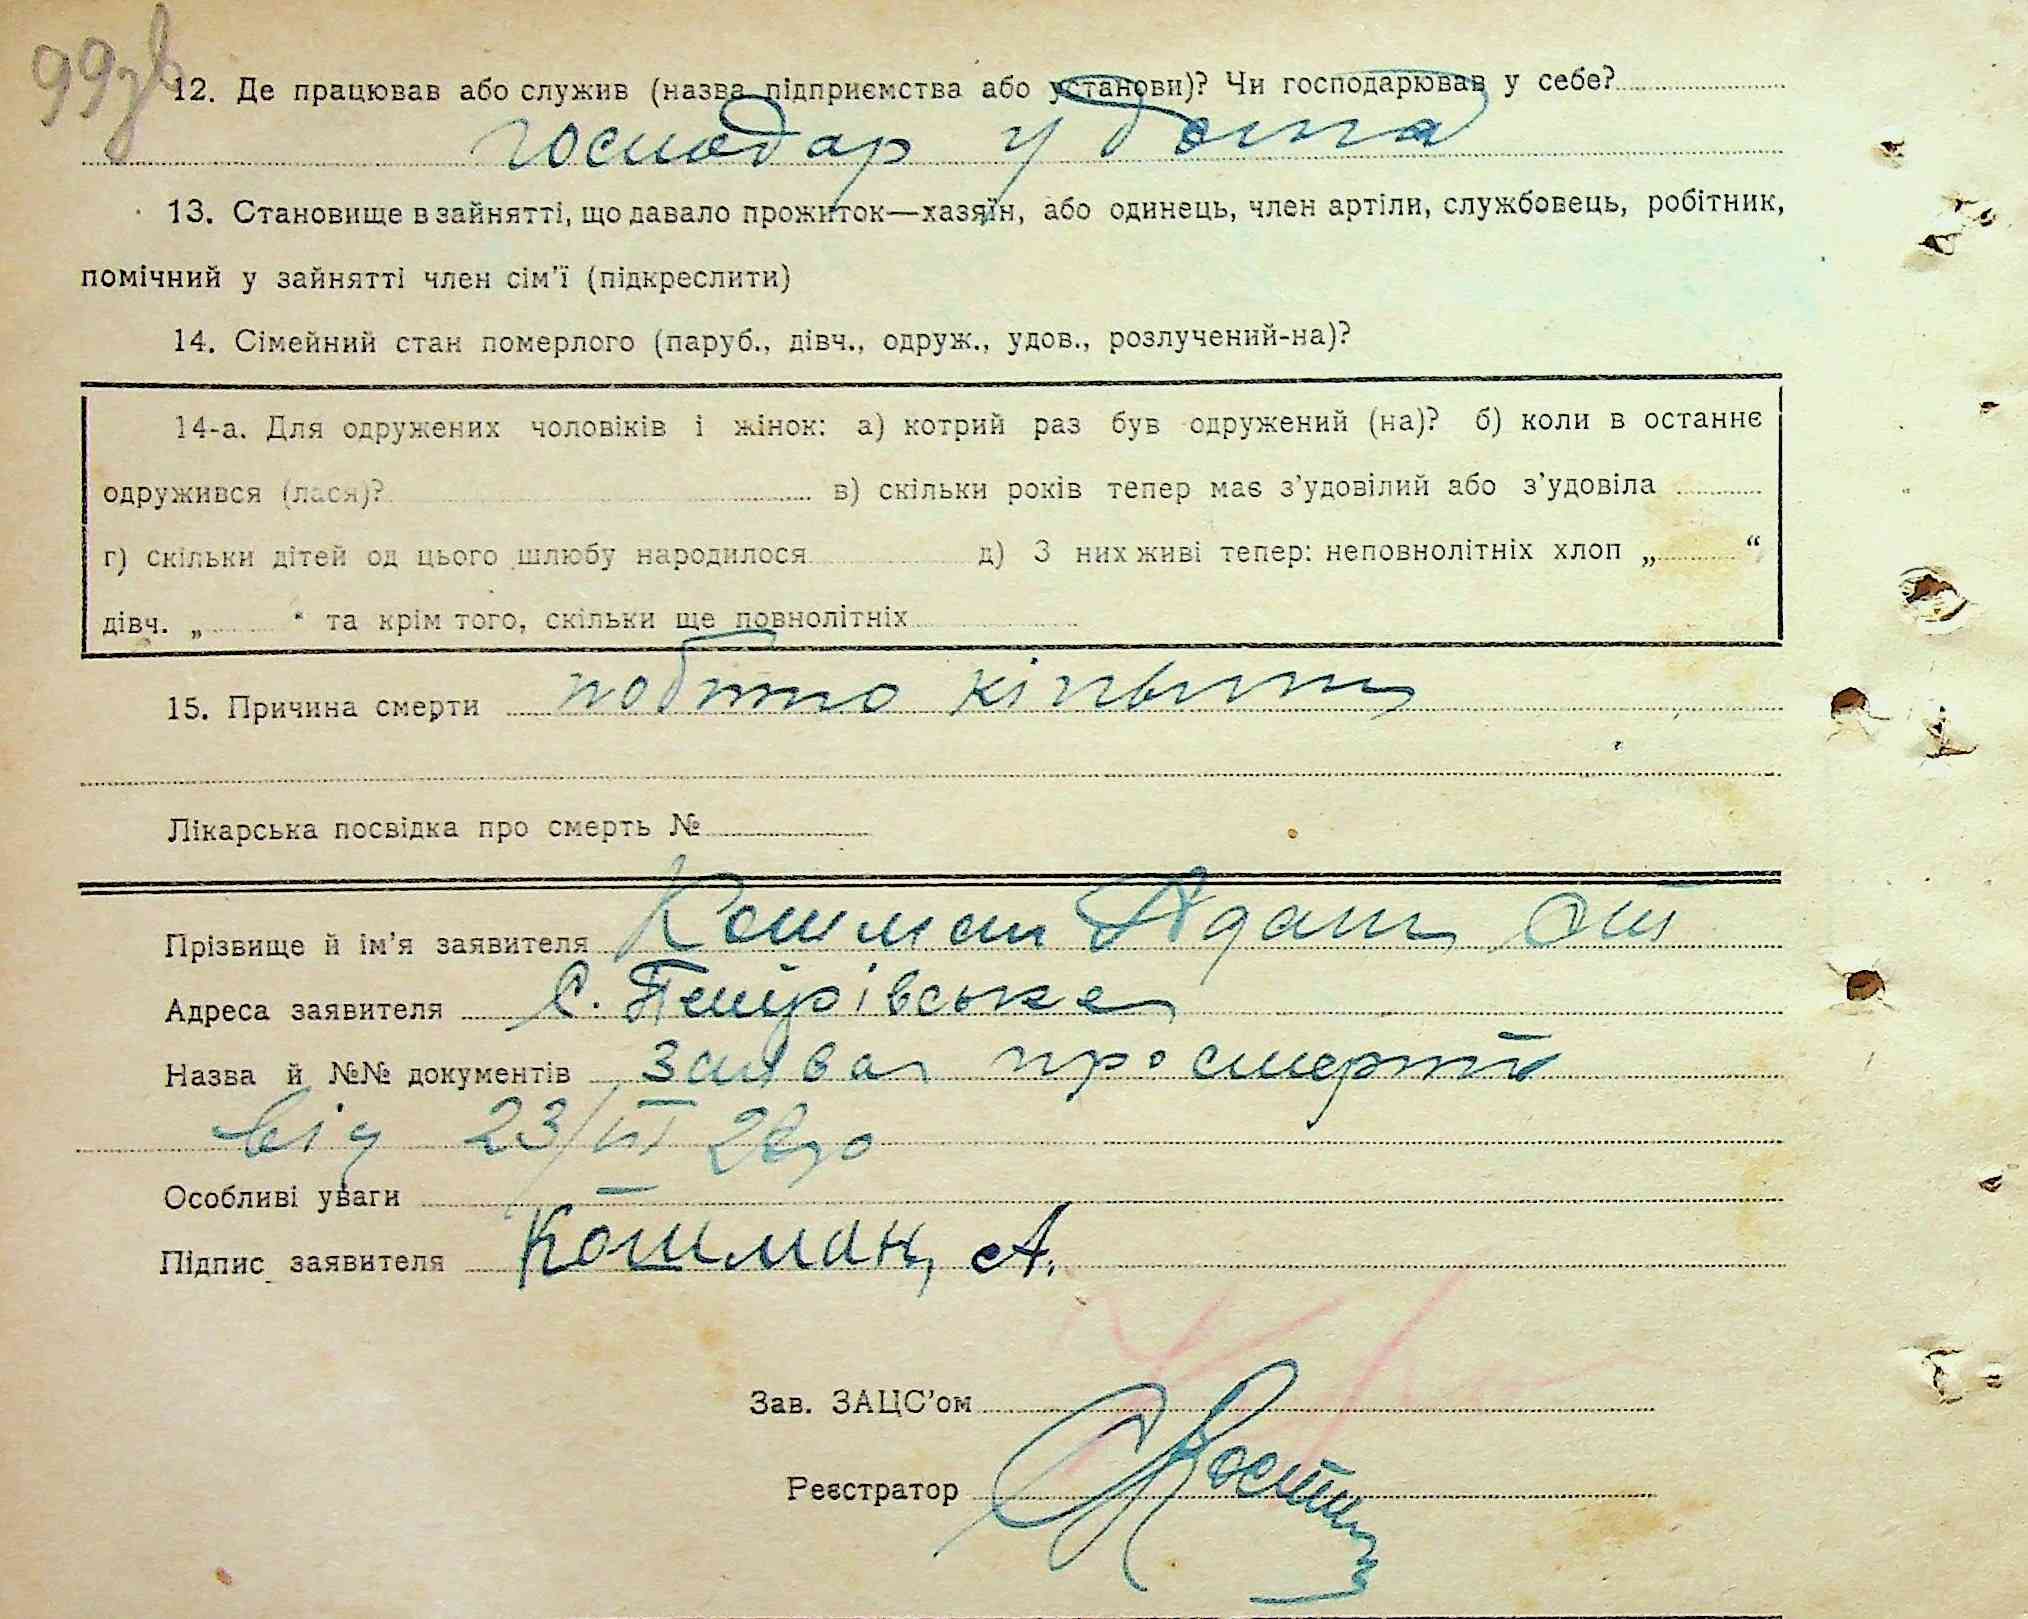 99зв
12. Де працював або служив (назва підприємства або установи)? Чи господарював у себе?
господар у
13. Становище в зайнятті, що давало прожиток—хазяїн, або одинець, член артіли, службовець, робітник,
помічний у зайнятті член сім'ї (підкреслити)
14. Сімейний стан померлого (паруб., дівч., одруж., удов., розлучений-на)?
14-а. Для одружених чоловіків і жінок: а) котрий раз був одружений (на)? б) коли в останнє
одружився (лася)? в) скільки років тепер має з'удовілий або з'удовіла
г) скільки дітей од цього шлюбу народилося д) З них живі тепер: неповнолітніх хлоп „ “
дівч. „ “ та крім того, скільки ще повнолітніх
15. Причина смерти побито
Лікарська посвідка про смерть №
Прізвище й ім'я заявителя Кошман Адам
Адреса заявителя с. Петрівське
Назва й №№ документів заява про смерть
від 23/III
Особливі уваги
Підпис заявителя Кошман, А.
Зав. ЗАЦС'ом
Реєстратор